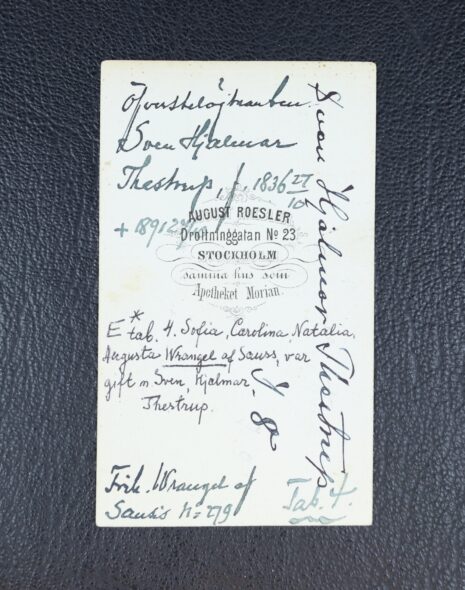 Öfverstelöjtnanten
Sven Hjalmar
Thestrup, f. 1836 27/10
+ 1891
AUGUST ROESLER
Drottninggatan No 23
STOCKHOLM
samma hus som
Apotheket Morian.
E* tab. 4. Sofia, Carolina, Natalia,
Augusta Wrangel af Sauss, var
gift m Sven, Hjalmar
Thestrup.
Frih. Wrangel af
Sauss No 279
Tab. 4.
Sven Hjalmar Thestrup